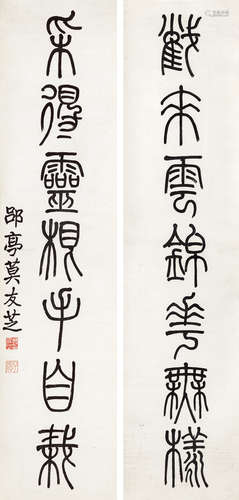 截來雲錦華無樣
采得靈根手自栽
郘亭莫友芝